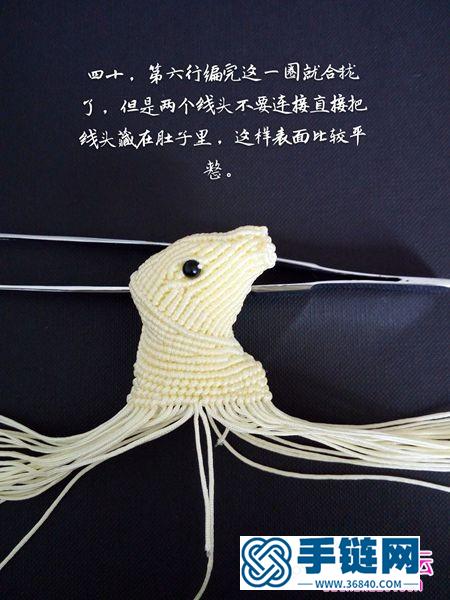 四十，第六行编完这一圈就合拢
了，但是两个线头不要连接直接把
线头藏在肚子里，这样表面比较平
整。
手链网
www.36840.com
云